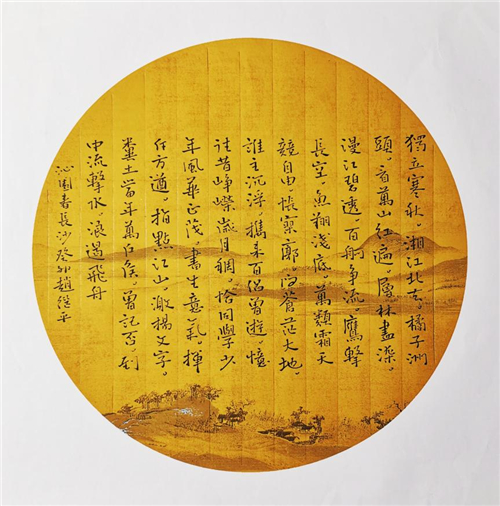 獨立寒秋。湘江北去。橘子洲
頭。看萬山紅遍。層林盡染。
漫江碧透。百舸争流。鷹擊
長空。魚翔淺底。萬類霜天
競自由。悵寥廓。问蒼茫大地。
誰主沉浮。攜来百侣曾遊。憶
往昔崢嶸歲月稠。恰同學少
年風華正茂。書生意氣。揮
斥方遒。指點江山。激揚文字。
糞土當年萬户侯。曾記否。到
中流擊水。浪遏飛舟
沁園春長沙癸卯趙平